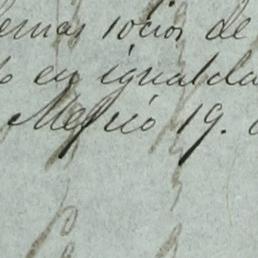 demas socios de
en igualda
Mejico 19.